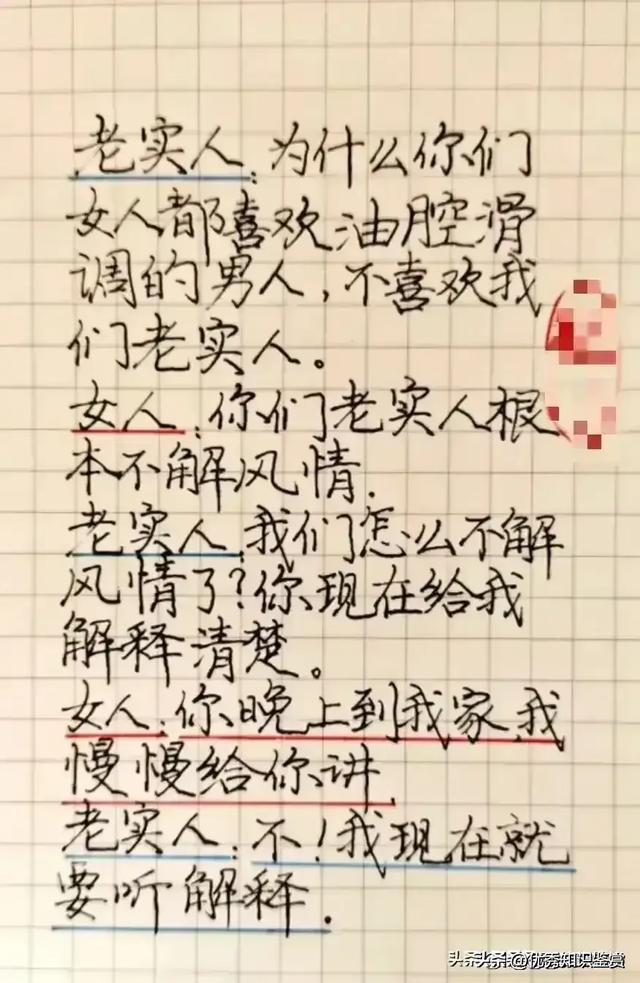 老实人:为什么你们
女人都喜欢油腔滑
调的男人,不喜欢我
们老实人。
女人:你们老实人根
本不解风情.
老实人:我们怎么不解
风情了?你现在给我
解释清楚。
女人:你晚上到我家,我
慢慢给你讲.
老实人:不!我现在就
要听解释.
头条@优秀知识鉴赏